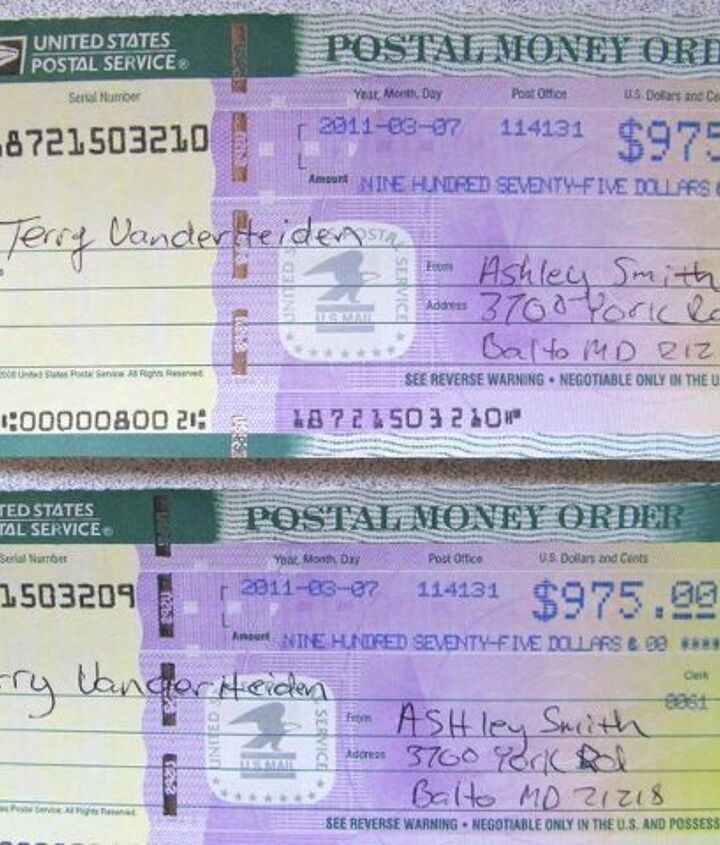 UNITED STATES
POSTAL SERVICE®
POSTAL MONEY ORD
Serial Number
Year, Month, Day
Post Office
U.S. Dollars and Ce
18721503210
2011-03-07
114131
$975
Amount
NINE HUNDRED SEVENTY-FIVE DOLLARS
Terry VanderHeiden
UNITED
POSTAL
SERVICE
U.S. MAIL
From
Ashley Smith
Address
3700 York Rd
Balto MD 212
2008 United States Postal Service. All Rights Reserved.
SEE REVERSE WARNING • NEGOTIABLE ONLY IN THE U
⑆000008002⑆
18721503210⑈
TED STATES
TAL SERVICE®
POSTAL MONEY ORDER
Serial Number
Year, Month, Day
Post Office
U.S. Dollars and Cents
1503209
2011-03-07
114131
$975.00
Amount
NINE HUNDRED SEVENTY-FIVE DOLLARS & 00 ****
rry VanderHeiden
Clerk
0061
UNITED
SERVICE
U.S. MAIL
From
ASHley Smith
Address
3700 York Rd
Balto MD 21218
es Postal Service. All Rights Reserved.
SEE REVERSE WARNING • NEGOTIABLE ONLY IN THE U.S. AND POSSESS